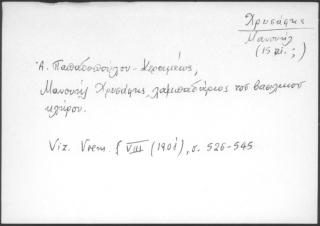 Χρυσάφης
Μανουήλ
(15 αι. ;)
Ἀ. Παπαδοπούλου - Κεραμέως,
Μανουήλ Χρυσάφης, λαμπαδάριος τοῦ βασιλικοῦ
κλήρου.
Viz. Vrem. VIII (1901), σ. 526-545